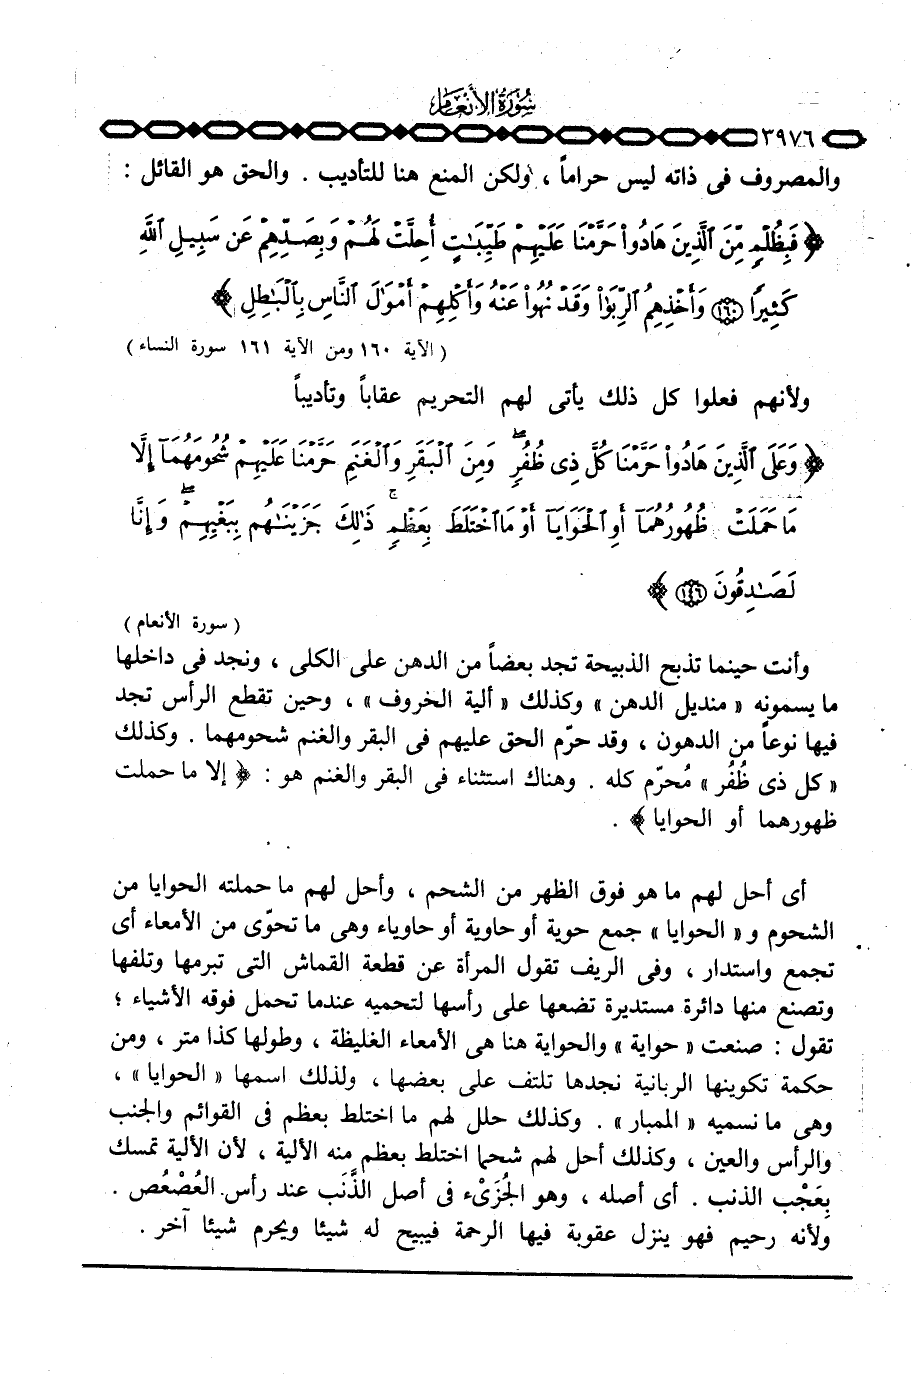 سُورَةُ الأَنْعَام
٣٩٧٦
والمصروف فى ذاته ليس حراماً ، ولكن المنع هنا للتأديب . والحق هو القائل :
﴿ فَبِظُلْمٍ مِّنَ ٱلَّذِينَ هَادُوا۟ حَرَّمْنَا عَلَيْهِمْ طَيِّبَـٰتٍ أُحِلَّتْ لَهُمْ وَبِصَدِّهِمْ عَن سَبِيلِ ٱللَّهِ
كَثِيرًا ۝١٦٠ وَأَخْذِهِمُ ٱلرِّبَوٰا۟ وَقَدْ نُهُوا۟ عَنْهُ وَأَكْلِهِمْ أَمْوَٰلَ ٱلنَّاسِ بِٱلْبَـٰطِلِ ﴾
( الآية ١٦٠ ومن الآية ١٦١ سورة النساء )
ولأنهم فعلوا كل ذلك يأتى لهم التحريم عقاباً وتأديباً
﴿ وَعَلَى ٱلَّذِينَ هَادُوا۟ حَرَّمْنَا كُلَّ ذِى ظُفُرٍ ۖ وَمِنَ ٱلْبَقَرِ وَٱلْغَنَمِ حَرَّمْنَا عَلَيْهِمْ شُحُومَهُمَآ إِلَّا
مَا حَمَلَتْ ظُهُورُهُمَآ أَوِ ٱلْحَوَايَآ أَوْ مَا ٱخْتَلَطَ بِعَظْمٍ ۚ ذَٰلِكَ جَزَيْنَـٰهُم بِبَغْيِهِمْ ۖ وَإِنَّا
لَصَـٰدِقُونَ ۝١٤٦ ﴾
( سورة الأنعام )
وأنت حينما تذبح الذبيحة تجد بعضاً من الدهن على الكلى ، ونجد فى داخلها
ما يسمونه « منديل الدهن » وكذلك « ألية الخروف » ، وحين تقطع الرأس تجد
فيها نوعاً من الدهون ، وقد حرّم الحق عليهم فى البقر والغنم شحومهما . وكذلك
« كل ذى ظُفُر » مُحرّم كله . وهناك استثناء فى البقر والغنم هو : ﴿ إلا ما حملت
ظهورهما أو الحوايا ﴾ .
أى أحل لهم ما هو فوق الظهر من الشحم ، وأحل لهم ما حملته الحوايا من
الشحوم و « الحوايا » جمع حوية أو حاوية أو حاوياء وهى ما تحوّى من الأمعاء أى
تجمع واستدار ، وفى الريف تقول المرأة عن قطعة القماش التى تبرمها وتلفها
وتصنع منها دائرة مستديرة تضعها على رأسها لتحميه عندما تحمل فوقه الأشياء ؛
تقول : صنعت « حواية » والحواية هنا هى الأمعاء الغليظة ، وطولها كذا متر ، ومن
حكمة تكوينها الربانية نجدها تلتف على بعضها ، ولذلك اسمها « الحوايا » ،
وهى ما نسميه « الممبار » . وكذلك حلل لهم ما اختلط بعظم فى القوائم والجنب
والرأس والعين ، وكذلك أحل لهم شحما اختلط بعظم منه الألية ، لأن الألية تمسك
بِعَجْب الذنب . أى أصله ، وهو الجُزَىْء فى أصل الذَّنَب عند رأس العُصْعُص .
ولأنه رحيم فهو ينزل عقوبة فيها الرحمة فيبيح له شيئا ويحرم شيئا آخر .